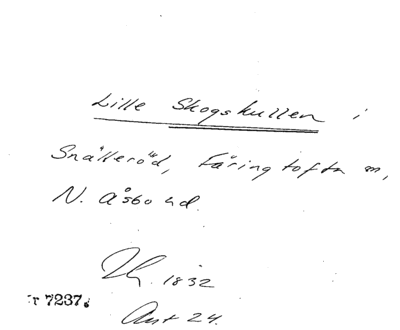 Lille Skogskullen i
Snälleröd, Färingtofta sn,
N. Åsbo hd.
1832
7237.
Ant 24.